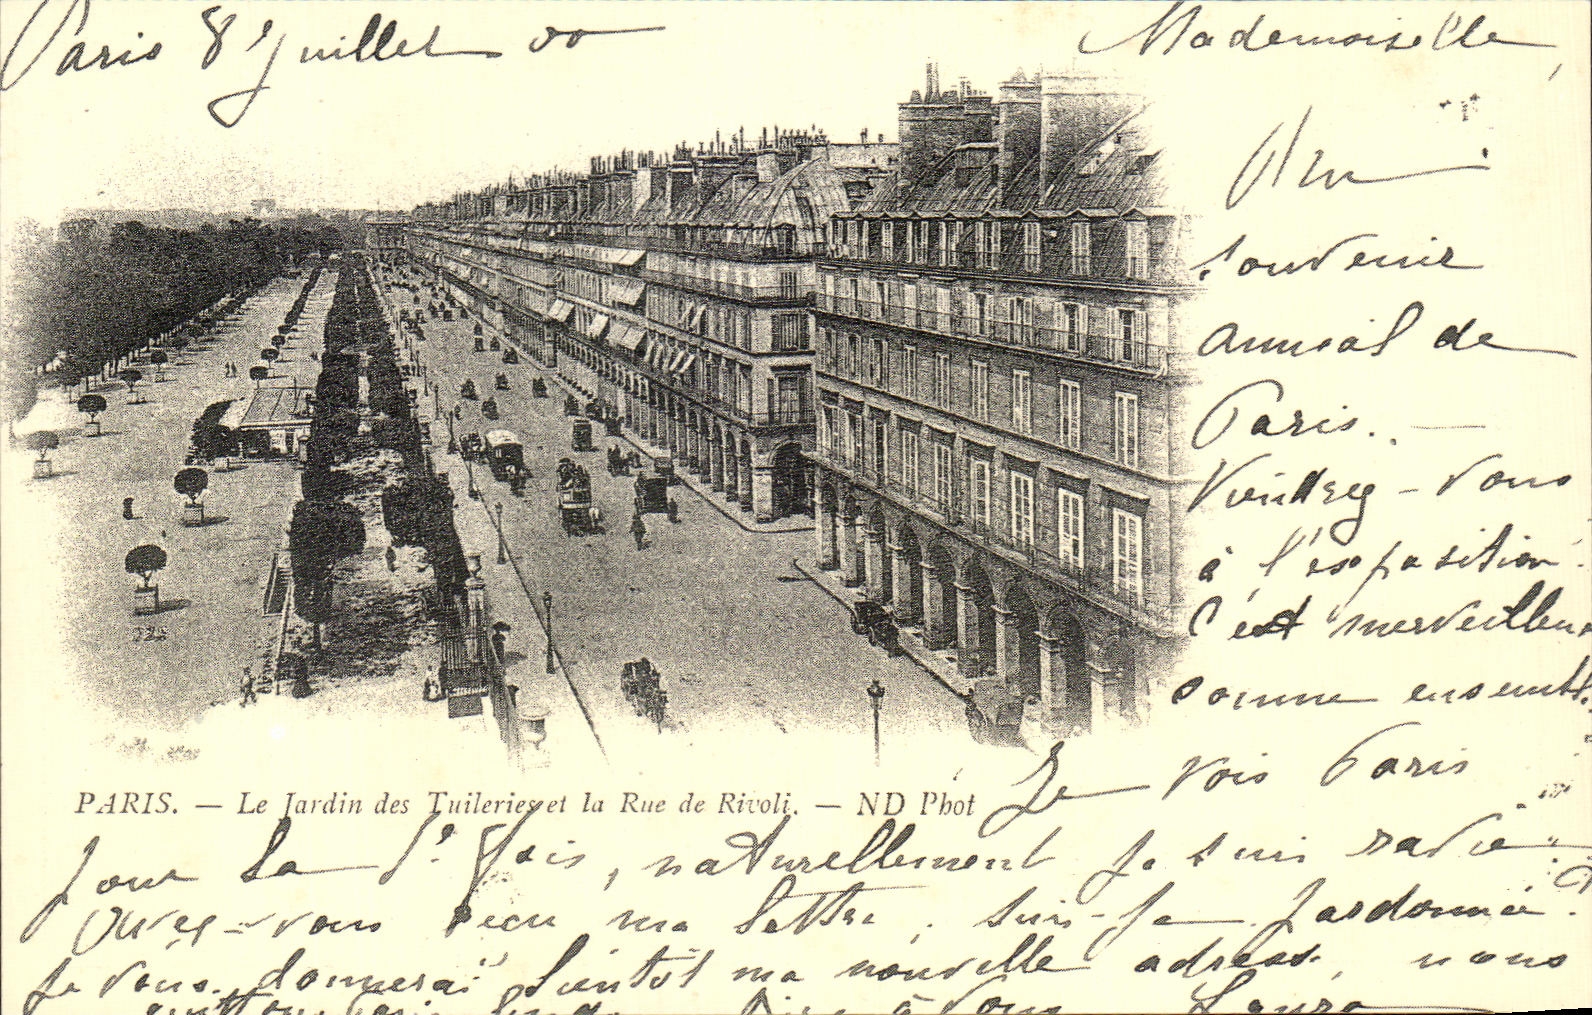 Paris 8 Juillet 00
Mademoiselle,
Un
souvenir
amical de
Paris. —
Viendrez-vous
à l'exposition.
C'est merveilleux
comme ensemble.
PARIS. — Le Jardin des Tuileries et la Rue de Rivoli. — ND Phot
Je vois Paris
pour la 1e fois, naturellement je suis ravie
Avez-vous reçu ma lettre, suis-je pardonnée?
Je vous donnerai bientôt ma nouvelle adresse, nous
quittons Paris lundi. à vous Laura